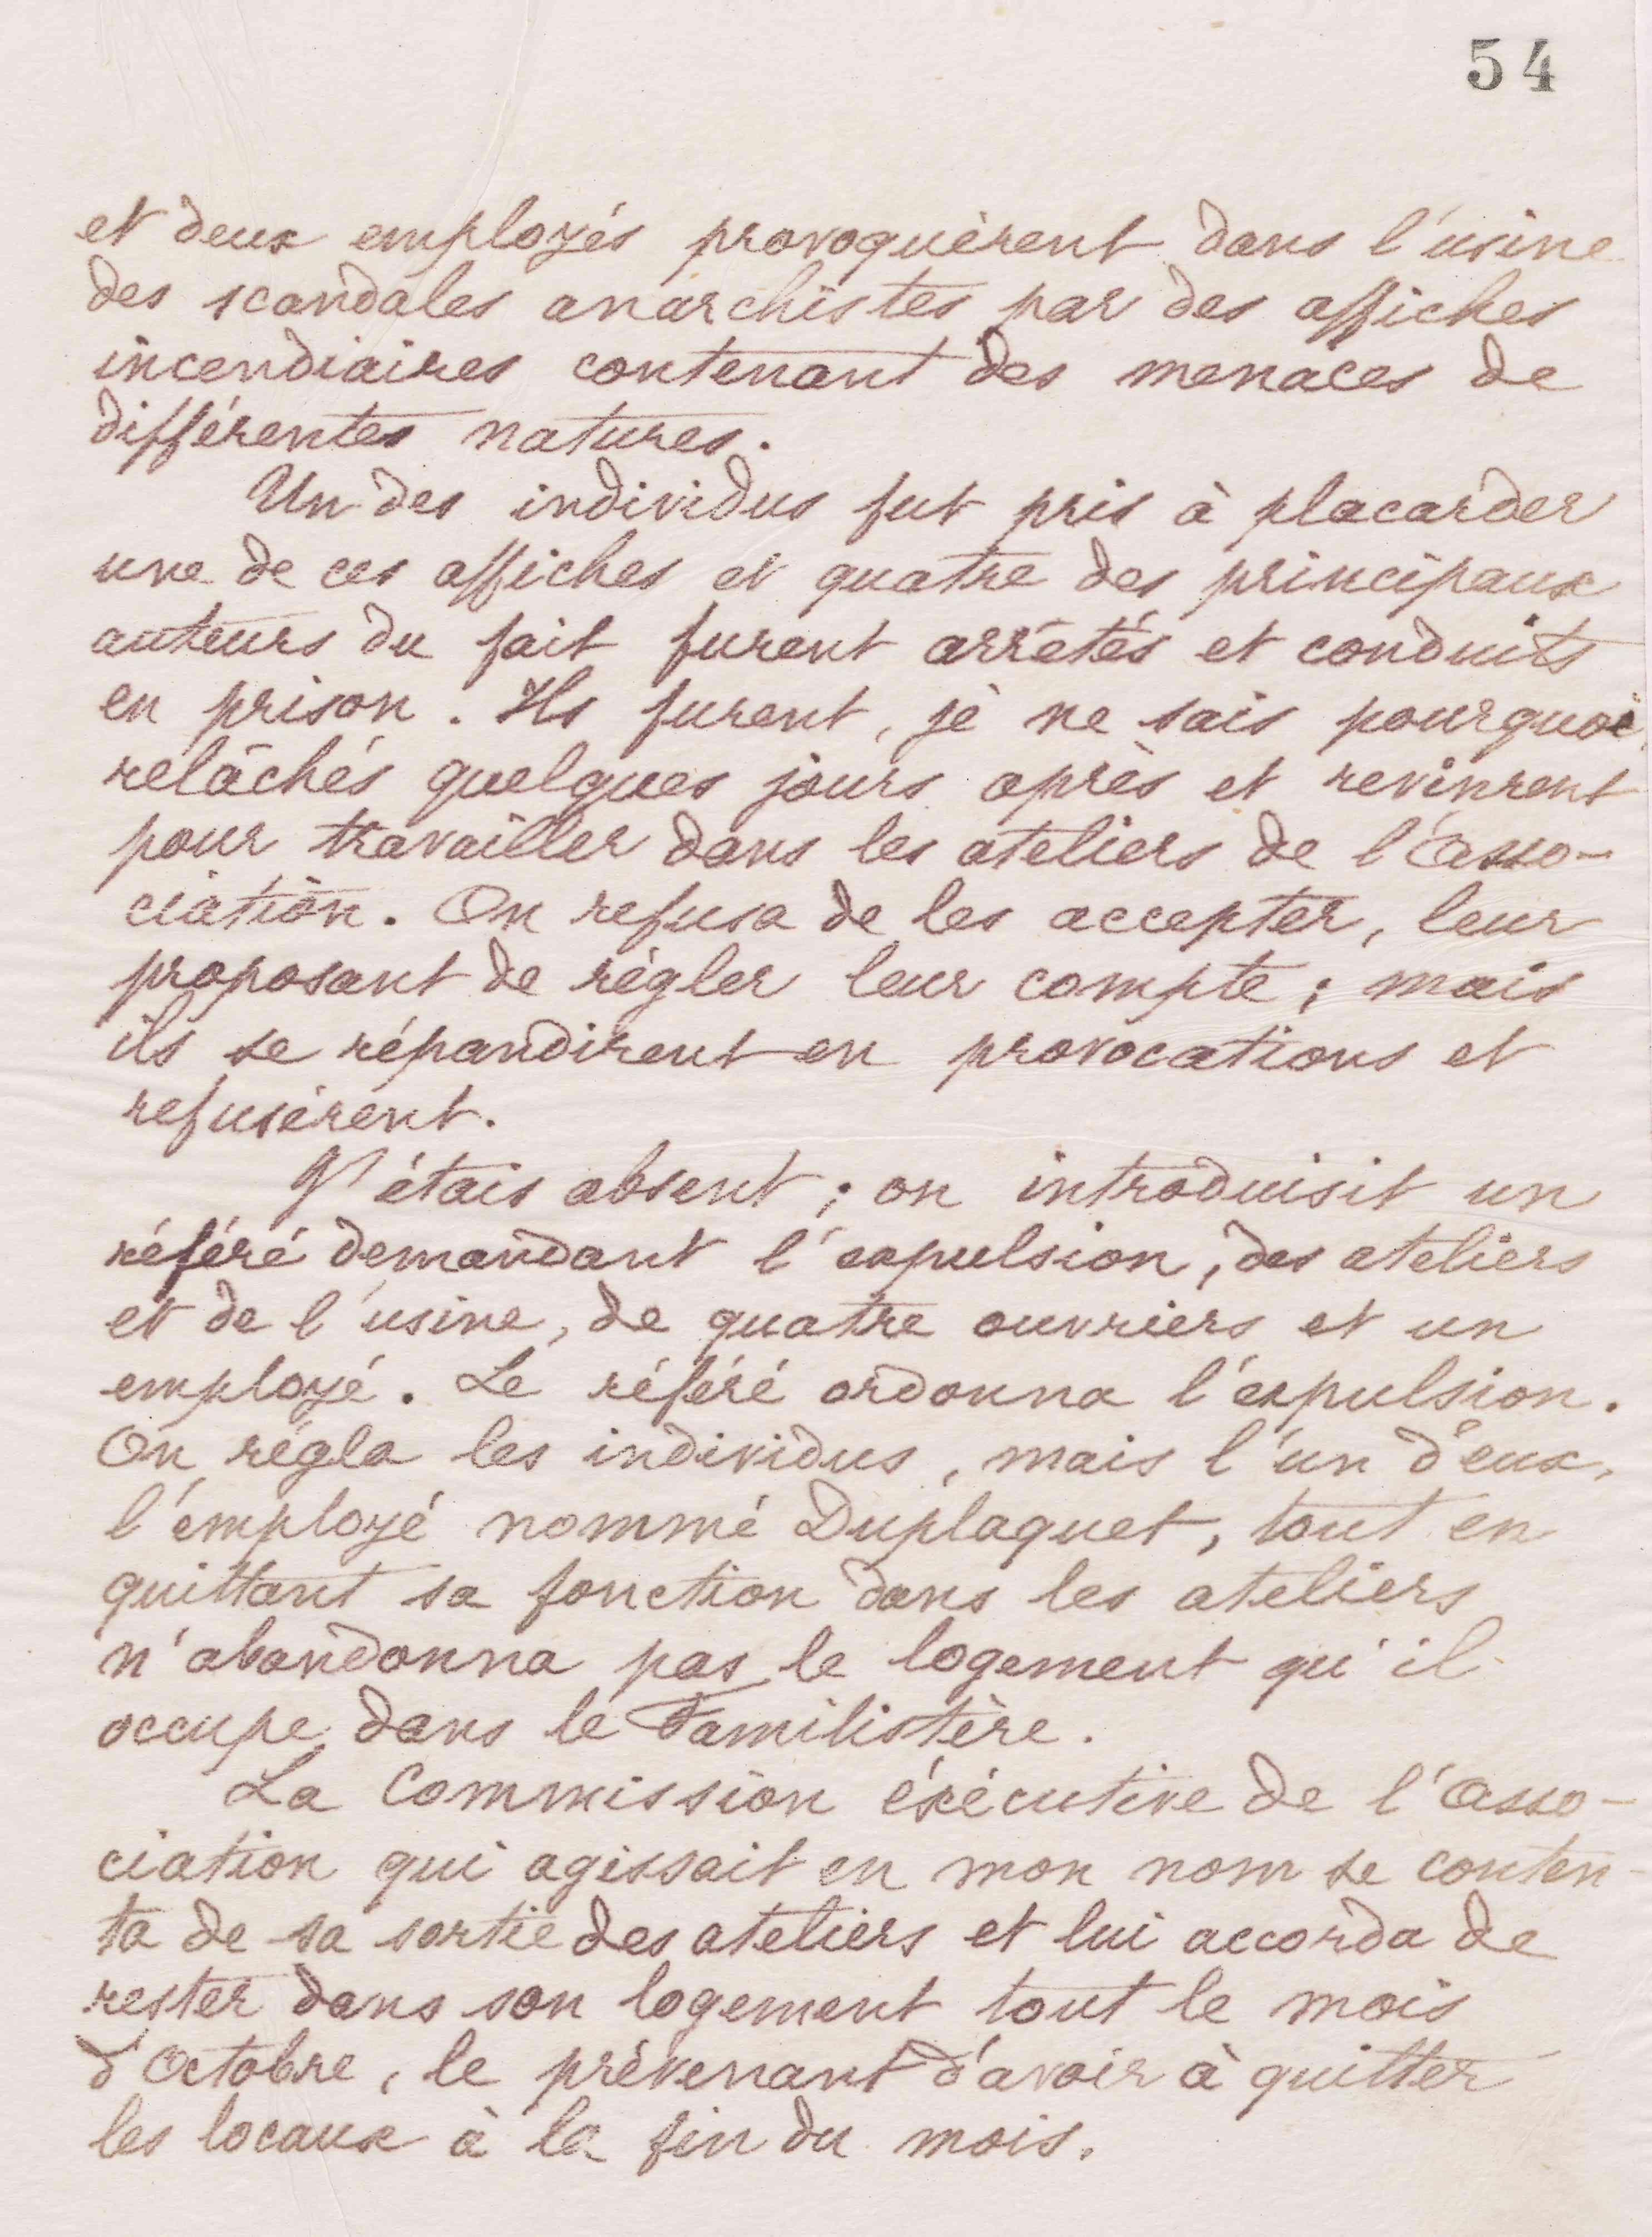 54
et deux employés provoquèrent dans l'usine
des scandales anarchistes par des affiches
incendiaires contenant des menaces de
différentes natures.
Un des individus fut pris à placarder
une de ces affiches et quatre des principaux
auteurs du fait furent arrêtés et conduits
en prison. Ils furent, je ne sais pourquoi,
relâchés quelques jours après et revinrent
pour travailler dans les ateliers de l'Asso-
ciation. On refusa de les accepter, leur
proposant de régler leur compte ; mais
ils se répandirent en provocations et
refusèrent.
J'étais absent ; on introduisit un
référé demandant l'expulsion, des ateliers
et de l'usine, de quatre ouvriers et un
employé. Le référé ordonna l'expulsion.
On régla les individus, mais l'un d'eux,
l'employé nommé Duplaquet, tout en
quittant sa fonction dans les ateliers
n'abandonna pas le logement qu'il
occupe dans le Familistère.
La Commission éxécutive de l'Asso-
ciation qui agissait en mon nom se conten-
ta de sa sortie des ateliers et lui accorda de
rester dans son logement tout le mois
d'Octobre, le prévenant d'avoir à quitter
les locaux à la fin du mois.